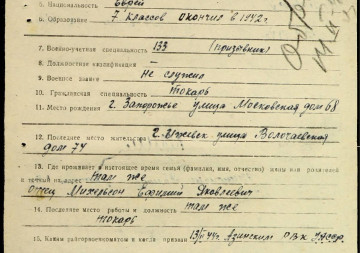 5. Национальность Еврей
6. Образование 7 классов окончил в 1942 г.
7. Военно-учетная специальность 133 (призывник)
8. Должностная квалификация —
9. Военное звание не служил
10. Гражданская специальность токарь
11. Место рождения г. Запорожье улица Московская дом 68
12. Последнее место жительства г. Ижевск улица Волочаевская
дом 74
13. Где проживает в настоящее время семья (фамилия, имя, отчество) жены или родителей
и точный их адрес там же
Отец Михельсон Яковлевич
14. Последнее место работы и должность там же
токарь
15. Каким райгорвоенкоматом и когда призван Азинским РВК УАССР.